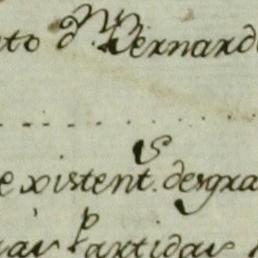 nto d.ⁿ Bernard
existent.ˢ desgra
Partidas